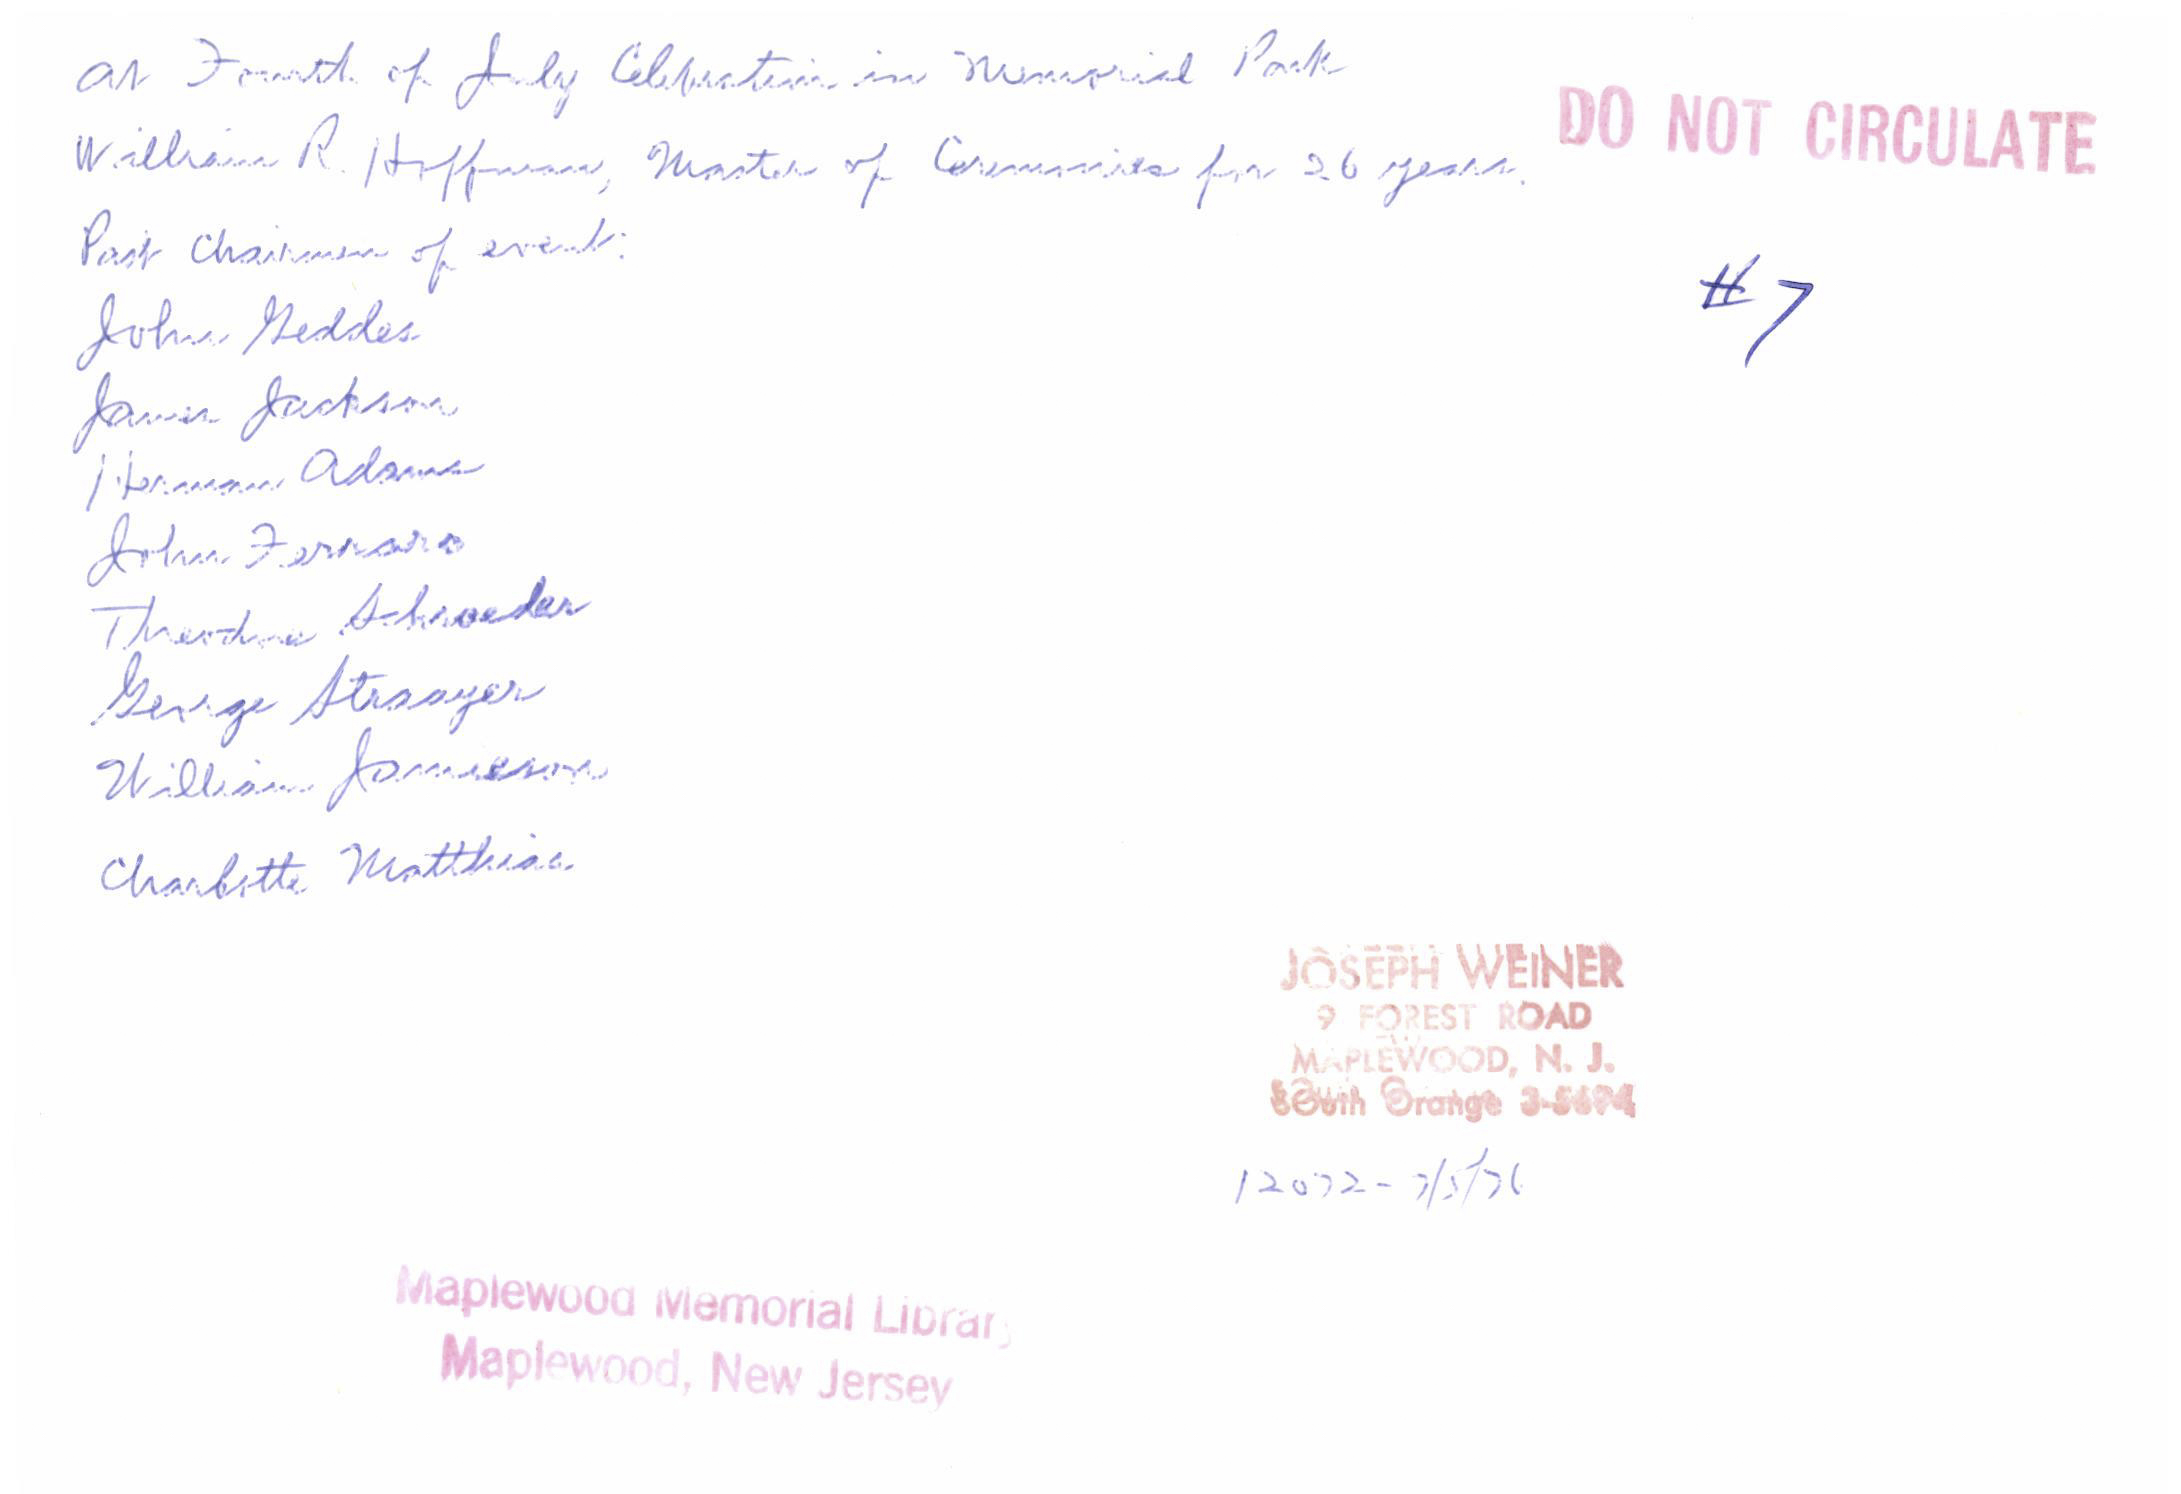 At Fourth of July Celebration in Memorial Park
William R. Hoffman, Master of Ceremonies for 26 years.
Past Chairmen of event:
John Geddes
James Jackson
Herman Adams
John Ferraro
Theodore Schroeder
George Straayer
William Jamieson
Charlotte Matthias
DO NOT CIRCULATE
#7
JOSEPH WEINER
9 FOREST ROAD
MAPLEWOOD, N. J.
South Orange 3-5694
12072-7/5/76
Maplewood Memorial Library
Maplewood, New Jersey